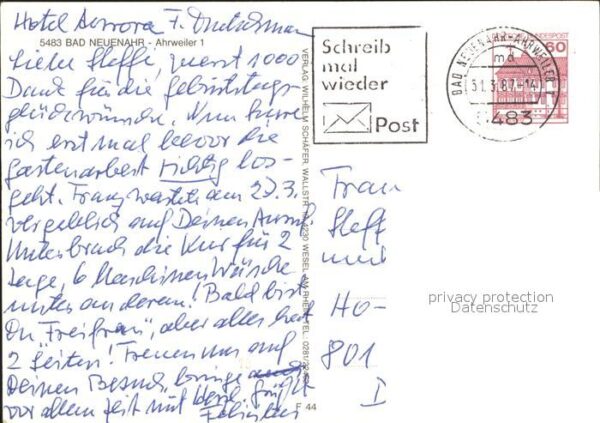 Hotel Aurora F.
5483 BAD NEUENAHR - Ahrweiler 1
Liebe Steffi, zuerst 1000
Dank für die Geburtstags-
glückwünsche. Nun kure
ich erst mal bevor die
Gartenarbeit richtig los-
geht. Franz wartete am 27.3.
vergeblich auf Deinen Anruf.
Unterbrach die Kur für 2
Tage, 6 Maschinen Wäsche
unter anderem! Bald bist
Du "Freifrau", aber alles hat
2 Seiten! Freuen uns auf
Deinen Besuch, bringe
vor allem Zeit mit herzl. Grüße
VERLAG WILHELM SCHÄFER, WALLSTR. 4230 WESEL AM RHEIN TEL. 0281/22
F 44
Schreib
mal
wieder
Post
BAD NEUENAHR-AHRWEILER 1
md
31.3.87-14
5483
BUNDESPOST
60
Frau
Steff
HO-
801
privacy protection
Datenschutz